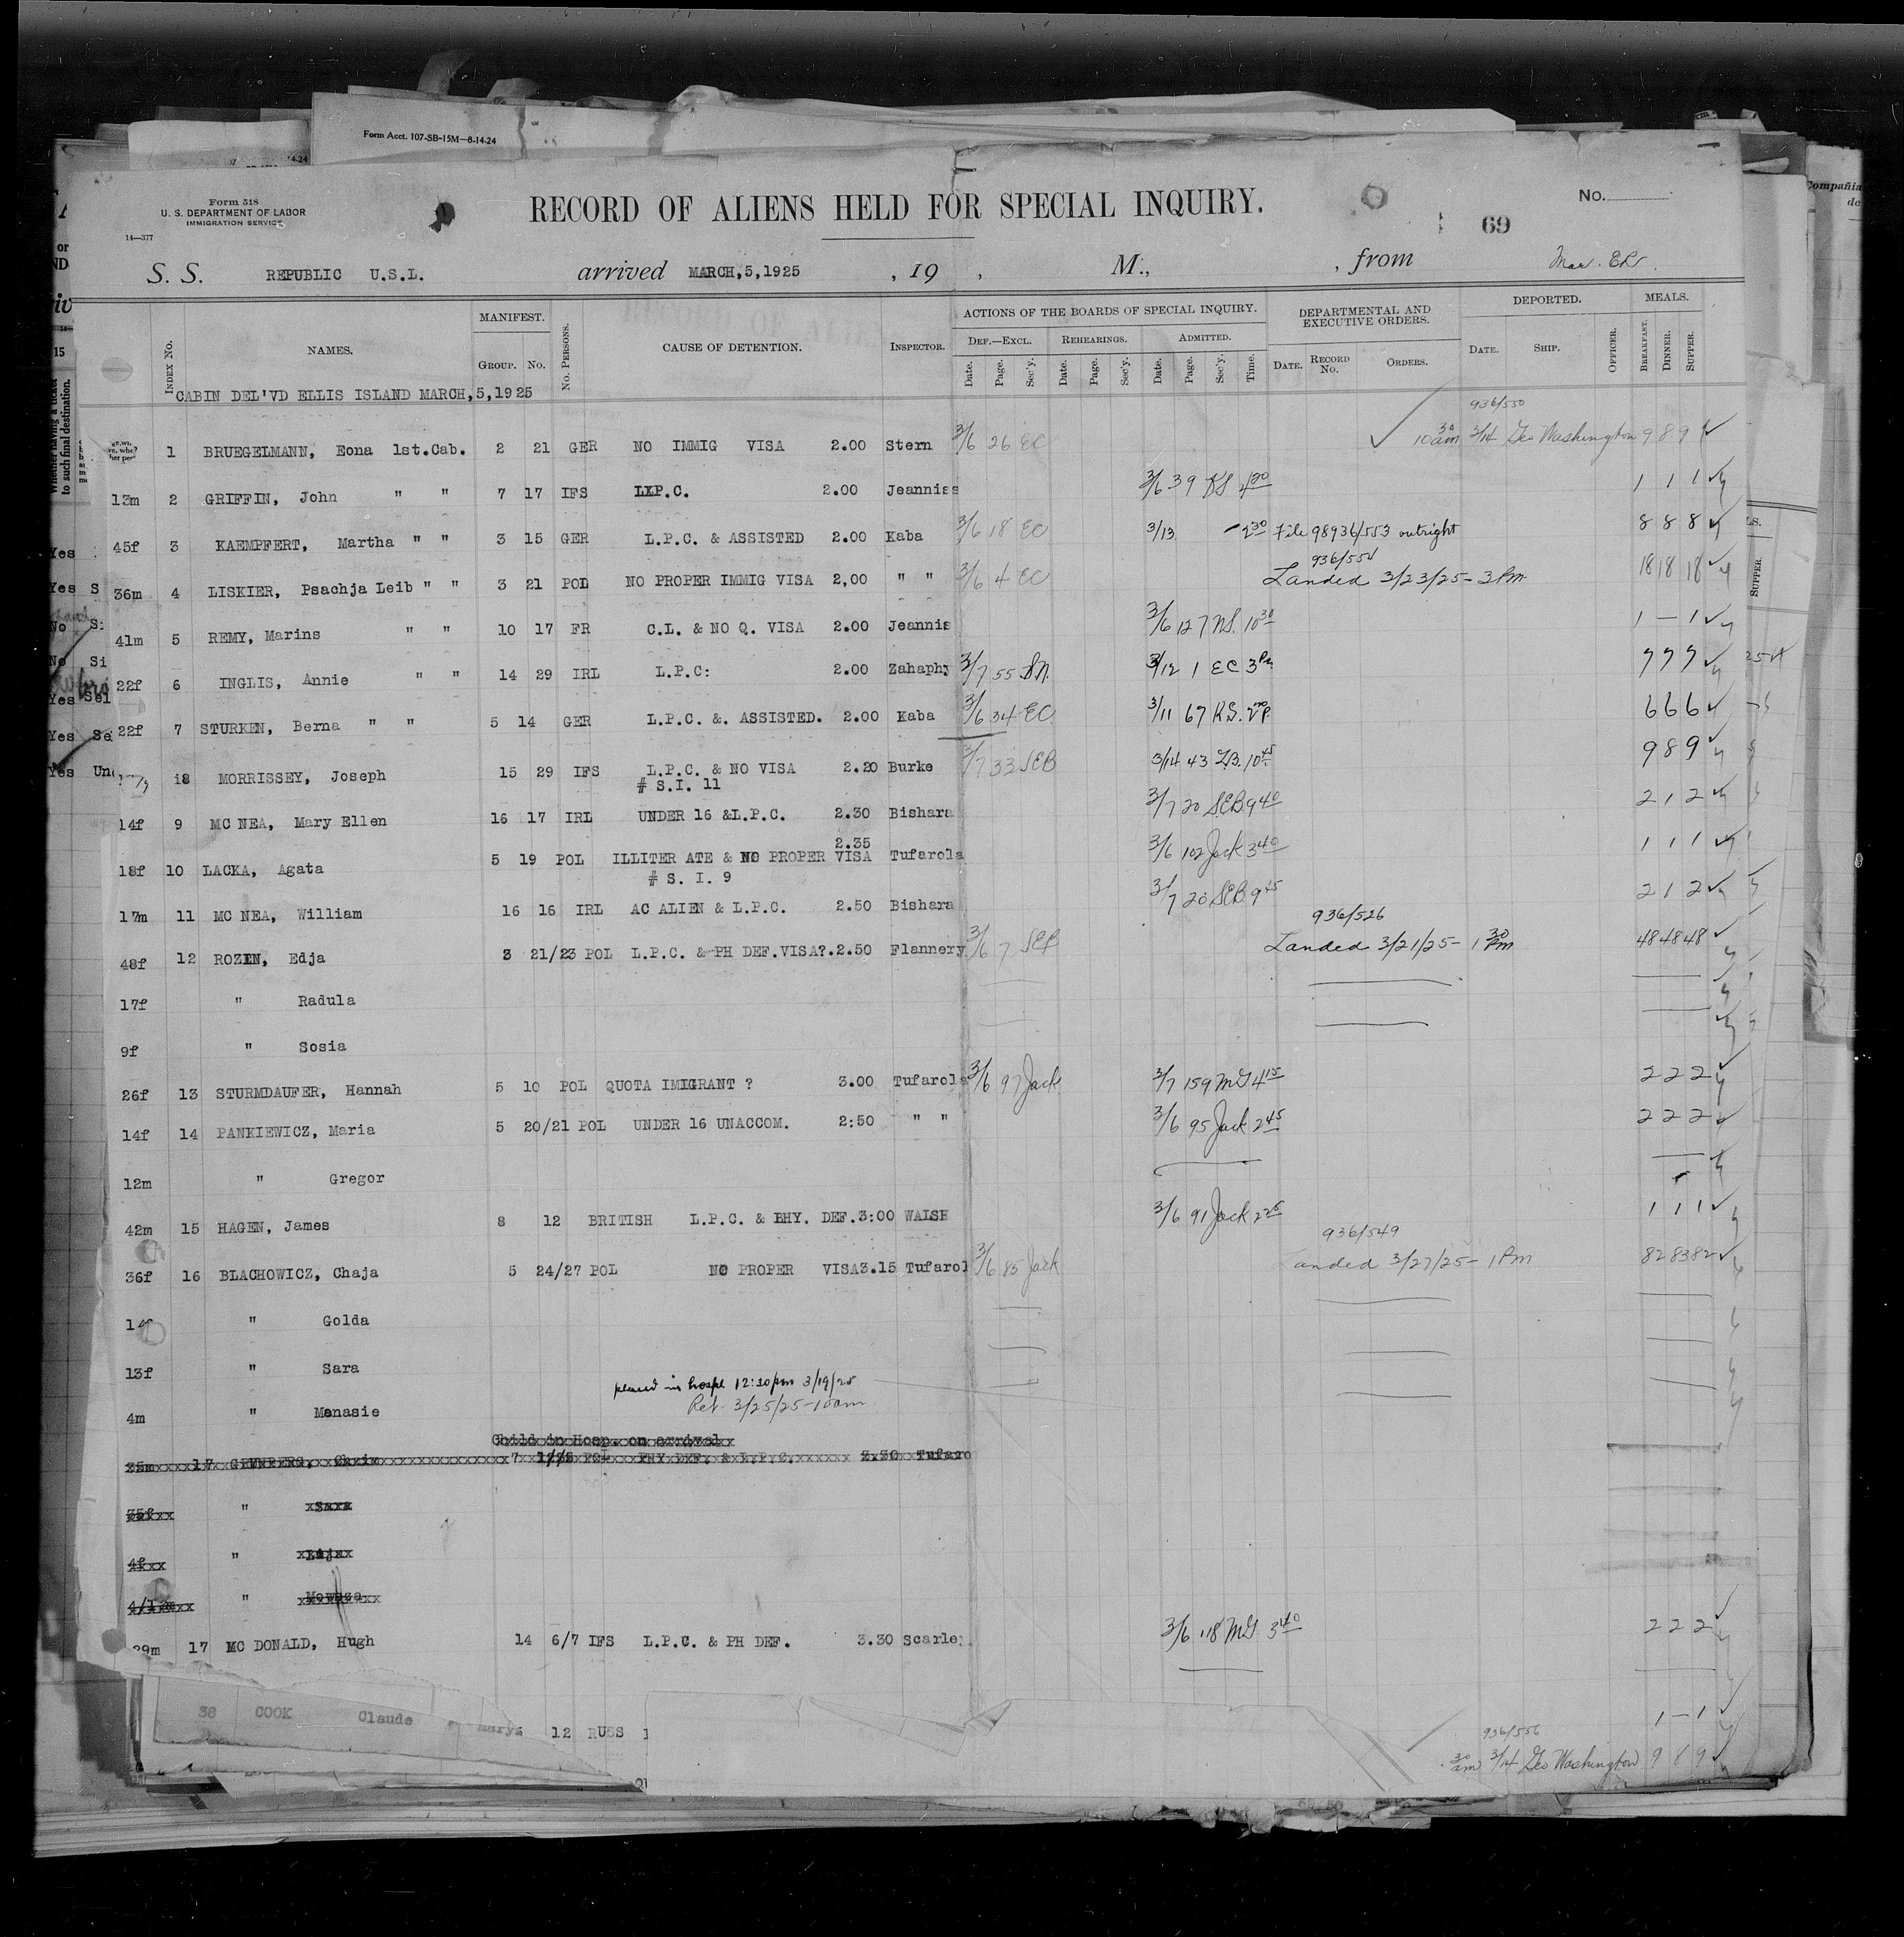 Form Acct. 107-SB-15M—8-14-24
Form 518
U. S. DEPARTMENT OF LABOR
IMMIGRATION SERVICE
14—377
RECORD OF ALIENS HELD FOR SPECIAL INQUIRY.
No.
69
S. S. REPUBLIC U.S.L. arrived MARCH,5,1925 , 19 , M., , from
INDEX No. NAMES. MANIFEST. GROUP. No. No. PERSONS. CAUSE OF DETENTION. INSPECTOR. ACTIONS OF THE BOARDS OF SPECIAL INQUIRY. DEF.—EXCL. REHEARINGS. ADMITTED. Date. Page. Sec'y. Date. Page. Sec'y. Date. Page. Sec'y. Time. DEPARTMENTAL AND EXECUTIVE ORDERS. DATE. RECORD No. ORDERS. DEPORTED. DATE. SHIP. OFFICER. MEALS. BREAKFAST. DINNER. SUPPER.
CABIN DEL'VD ELLIS ISLAND MARCH,5,1925
936/550
1 BRUEGELMANN, Eona 1st.Cab. 2 21 GER NO IMMIG VISA 2.00 Stern 3/6 26 EC 10 30 am 3/14 Geo Washington 9 8 9
13m 2 GRIFFIN, John " " 7 17 IFS L.P.C. 2.00 Jeanniss 3/6 39 RS 4 30 1 1 1
45f 3 KAEMPFERT, Martha " " 3 15 GER L.P.C. & ASSISTED 2.00 Kaba 3/6 18 EC 3/13 - 2 30 File 98936/553 outright 8 8 8
936/554
36m 4 LISKIER, Psachja Leib " " 3 21 POL NO PROPER IMMIG VISA 2,00 " " 3/6 4 EC Landed 3/23/25 - 3 Pm 18 18 18
41m 5 REMY, Marins " " 10 17 FR C.L. & NO Q. VISA 2.00 Jeannis 3/6 127 NS. 10 30 1 — 1
22f 6 INGLIS, Annie " " 14 29 IRL L.P.C: 2.00 Zahaphy 3/7 55 3/12 1 EC 3 Pm 7 7 7
22f 7 STURKEN, Berna " " 5 14 GER L.P.C. &. ASSISTED. 2.00 Kaba 3/6 34 EC 3/11 67 R.S. 6 6 6
18 MORRISSEY, Joseph 15 29 IFS L.P.C. & NO VISA 2.20 Burke 3/7 33 SEB 3/14 43 10 45 9 8 9
# S.I. 11
14f 9 MC NEA, Mary Ellen 16 17 IRL UNDER 16 &L.P.C. 2.30 Bishara 3/7 20 SEB 9 40 2 1 2
2.35
18f 10 LACKA, Agata 5 19 POL ILLITER ATE & NO PROPER VISA Tufarola 3/6 102 Jack 3 40 1 1 1
# S. I. 9
17m 11 MC NEA, William 16 16 IRL AC ALIEN & L.P.C. 2.50 Bishara 3/7 20 SEB 9 45 2 1 2
936/526
48f 12 ROZEN, Edja 3 21/23 POL L.P.C. & PH DEF.VISA?.2.50 Flannery. 3/6 7 SEB Landed 3/21/25 - 1 30 Pm 48 48 48
17f " Radula
9f " Sosia
26f 13 STURMDAUFER, Hannah 5 10 POL QUOTA IMIGRANT ? 3.00 Tufarola 3/6 97 Jack 3/7 159 MG 4 15 2 2 2
14f 14 PANKIEWICZ, Maria 5 20/21 POL UNDER 16 UNACCOM. 2:50 " " 3/6 95 Jack 2 45 2 2 2
12m " Gregor
42m 15 HAGEN, James 8 12 BRITISH L.P.C. & PHY. DEF.3:00 WALSH 3/6 91 Jack 2 25 1 1 1
936/549
36f 16 BLACHOWICZ, Chaja 5 24/27 POL NO PROPER VISA3.15 Tufarol 3/6 85 Jack anded 3/27/25 - 1 Pm 82 83 82
14f " Golda
13f " Sara
placed in hospl 12:30pm 3/19/25
Ret. 3/25/25 - 10am
4m " Menasie
Child in Hosp. on arrival
35m 17 7 POL PHY DEF. & L.P.C. 3.30 Tufaro
35f " Sara
4f "
4/12m "
29m 17 MC DONALD, Hugh 14 6/7 IFS L.P.C. & PH DEF. 3.30 Scarley. 3/6 118 MG 3 40 2 2 2
38 COOK Claude
Marys 12 RUSS 1 — 1
936/556
30 am 3/14 Geo Washington 9 8 9